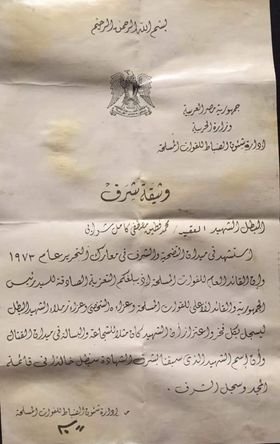 بسم الله الرحمن الرحيم
جمهورية مصر العربية
وزارة الحربية
إدارة شئون الضباط للقوات المسلحة
وثيقة شرف
البطل الشهيد العقيد / محمد كامل
استشهد في ميدان التضحية والشرف في معارك التحرير عام ١٩٧٣
وإن القائد العام للقوات المسلحة إذ يبلغكم التعزية الصادقة للسيد رئيس
الجمهورية والقائد الأعلى للقوات المسلحة وعزاءه الشخصي وعزاء زملاء الشهيد البطل
ليسجل بكل فخر واعتزاز أن الشهيد كان مثلا للشجاعة والبسالة في ميدان القتال
وأن إسم الشهيد الذي سبقنا بشرف الشهادة سيظل خالدا في قائمة
المجد وسجل الشرف .
إدارة شئون الضباط للقوات المسلحة